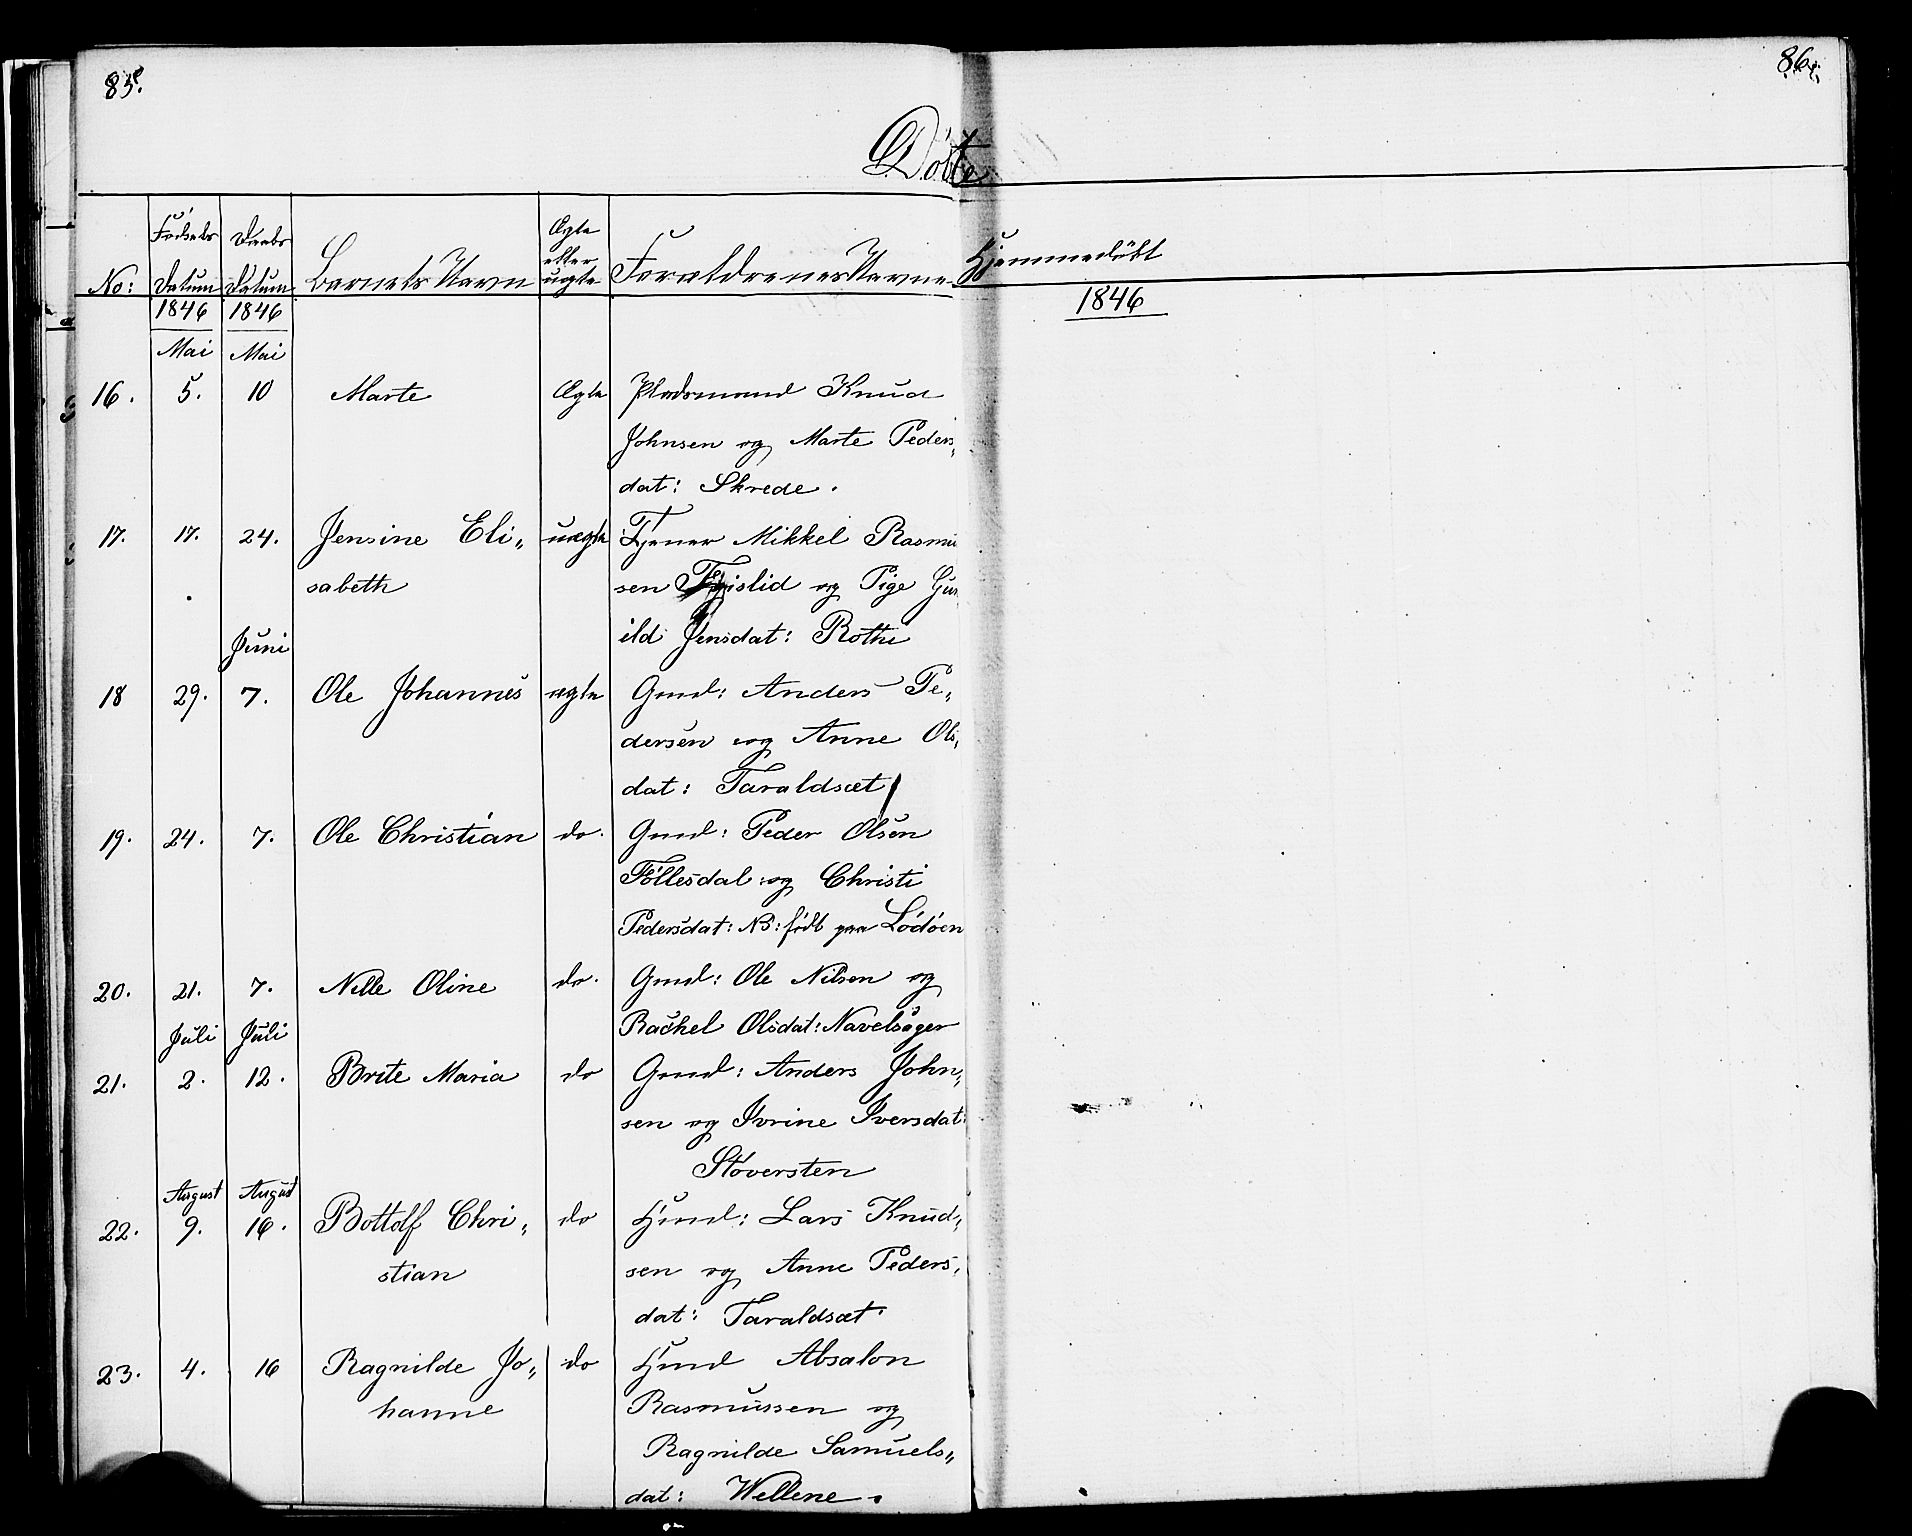 85.
86.
Døbte
No:
Fødsels Datum
Daabs Datum
Barnets Navn
Ægte eller uægte
Forældrenes Navne
Hjemmedøbt
1846
1846
1846
Mai
Mai
16. 5. 10 Marte Ægte Pladsmand Knud
Johnsen og Marte Peders„
dat: Skrede.
17. 17. 24. Jensine Eli„ uægte Tjener Mikkel Rasmu
sen og Pige Gun
sabeth
ild Jensdat: Rothe
Juni
18 29. 7. Ole Johannes ægte Gmd: Anders Pe„
dersen og Anne Ols„
dat: Taraldsæt
19. 24. 7. Ole Christian do. Gmd: Peder Olsen
Föllesdal og Christi
Pedersdat: NB: født paa Lødöen
20. 21. 7. Nille Oline do. Gmd: Ole Nilsen og
Rachel Olsdat: Navelsager
Juli Juli
21. 2. 12. Brite Maria do Gmd: Anders John„
sen og Ivrine Iversdat:
Støversten
August August
22. 9. 16. Bottolf Chri„ do Hmd: Lars Knud„
stian
sen og Anne Peders„
dat: Taraldsæt
23. 4. 16 Ragnilde Jo„ do Hmd Absalon
hanne
Rasmussen og
Ragnilde Samuels„
dat: Wellene.